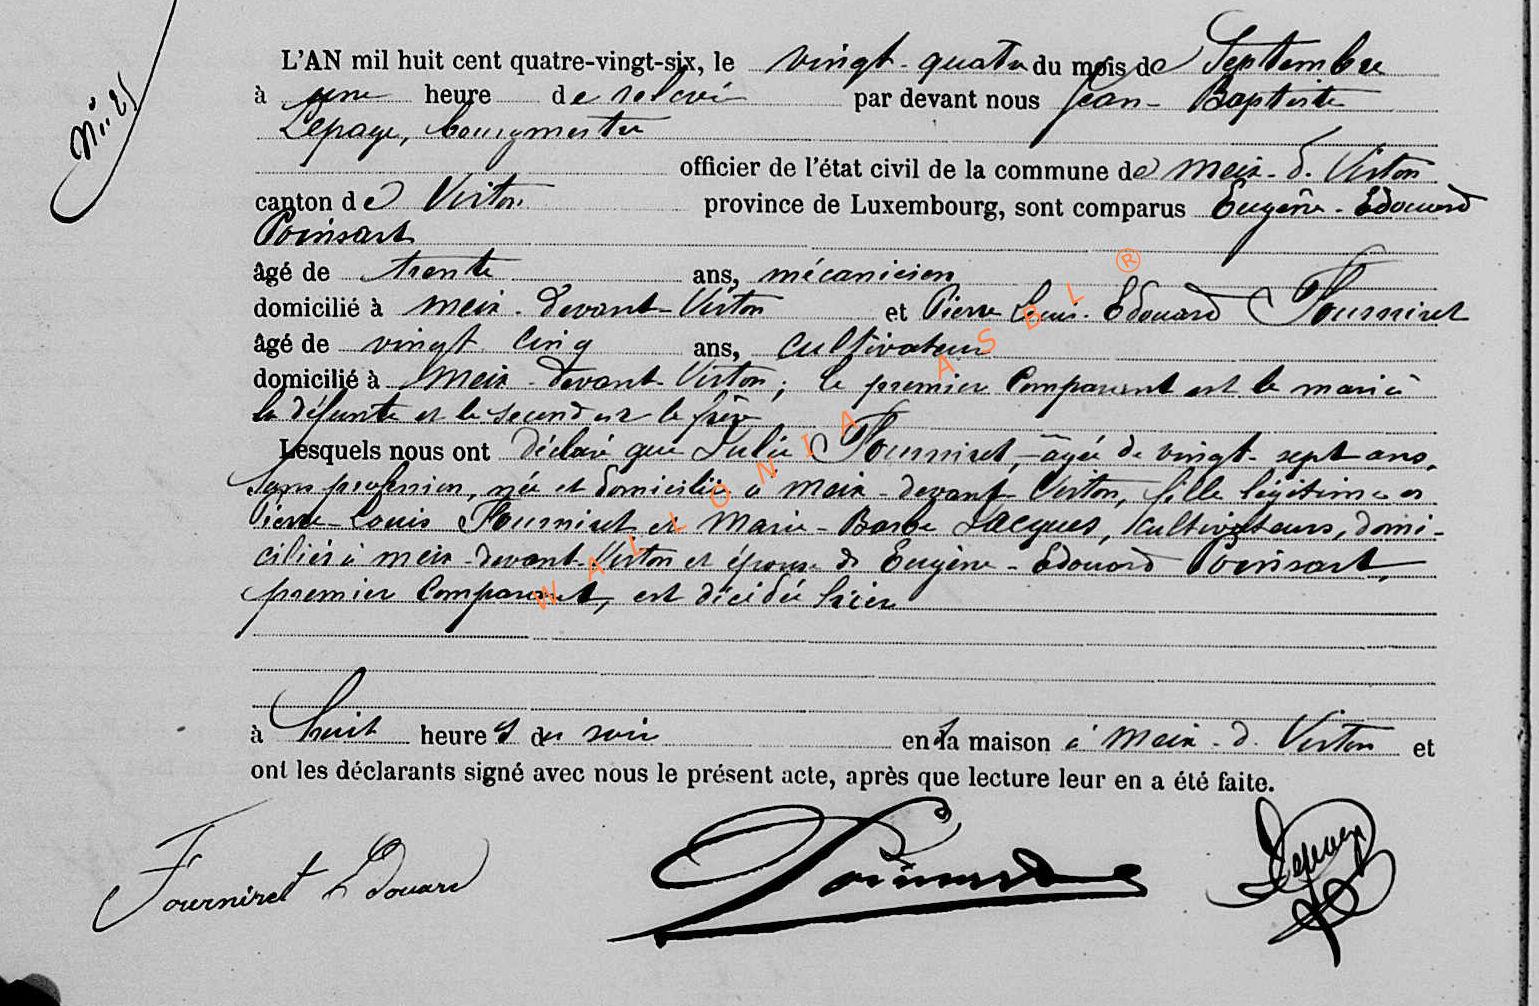 N° 21
L'AN mil huit cent quatre-vingt-six, le vingt-quatre du mois de Septembre
à une heure de relevée par devant nous Jean-Baptiste
Lepage, bourgmestre
officier de l'état civil de la commune de Meix-d-Virton
canton de Virton province de Luxembourg, sont comparus Eugène-Edouard
Poinsart
âgé de trente ans, mécanicien
domicilié à Meix-devant-Virton et Pierre Louis-Edouard Fourniret
âgé de vingt cinq ans, cultivateur
domicilié à Meix-devant-Virton; le premier comparant est le mari à
la défunte et le second est le frère
Lesquels nous ont déclaré que Julie Fourniret, âgée de vingt-sept ans,
sans profession, née et domiciliée à Meix-devant-Virton, fille légitime de
Pierre-Louis Fourniret et Marie-Barbe Jacques, cultivateurs, domi-
ciliés à Meix-devant-Virton et épouse de Eugène-Edouard Poinsart,
premier comparant, est décédée hier
à huit heures du soir en sa maison à Meix-d-Virton et
ont les déclarants signé avec nous le présent acte, après que lecture leur en a été faite.
Fourniret Edouard Poinsart Lepage
WALLONIA ASBL ®